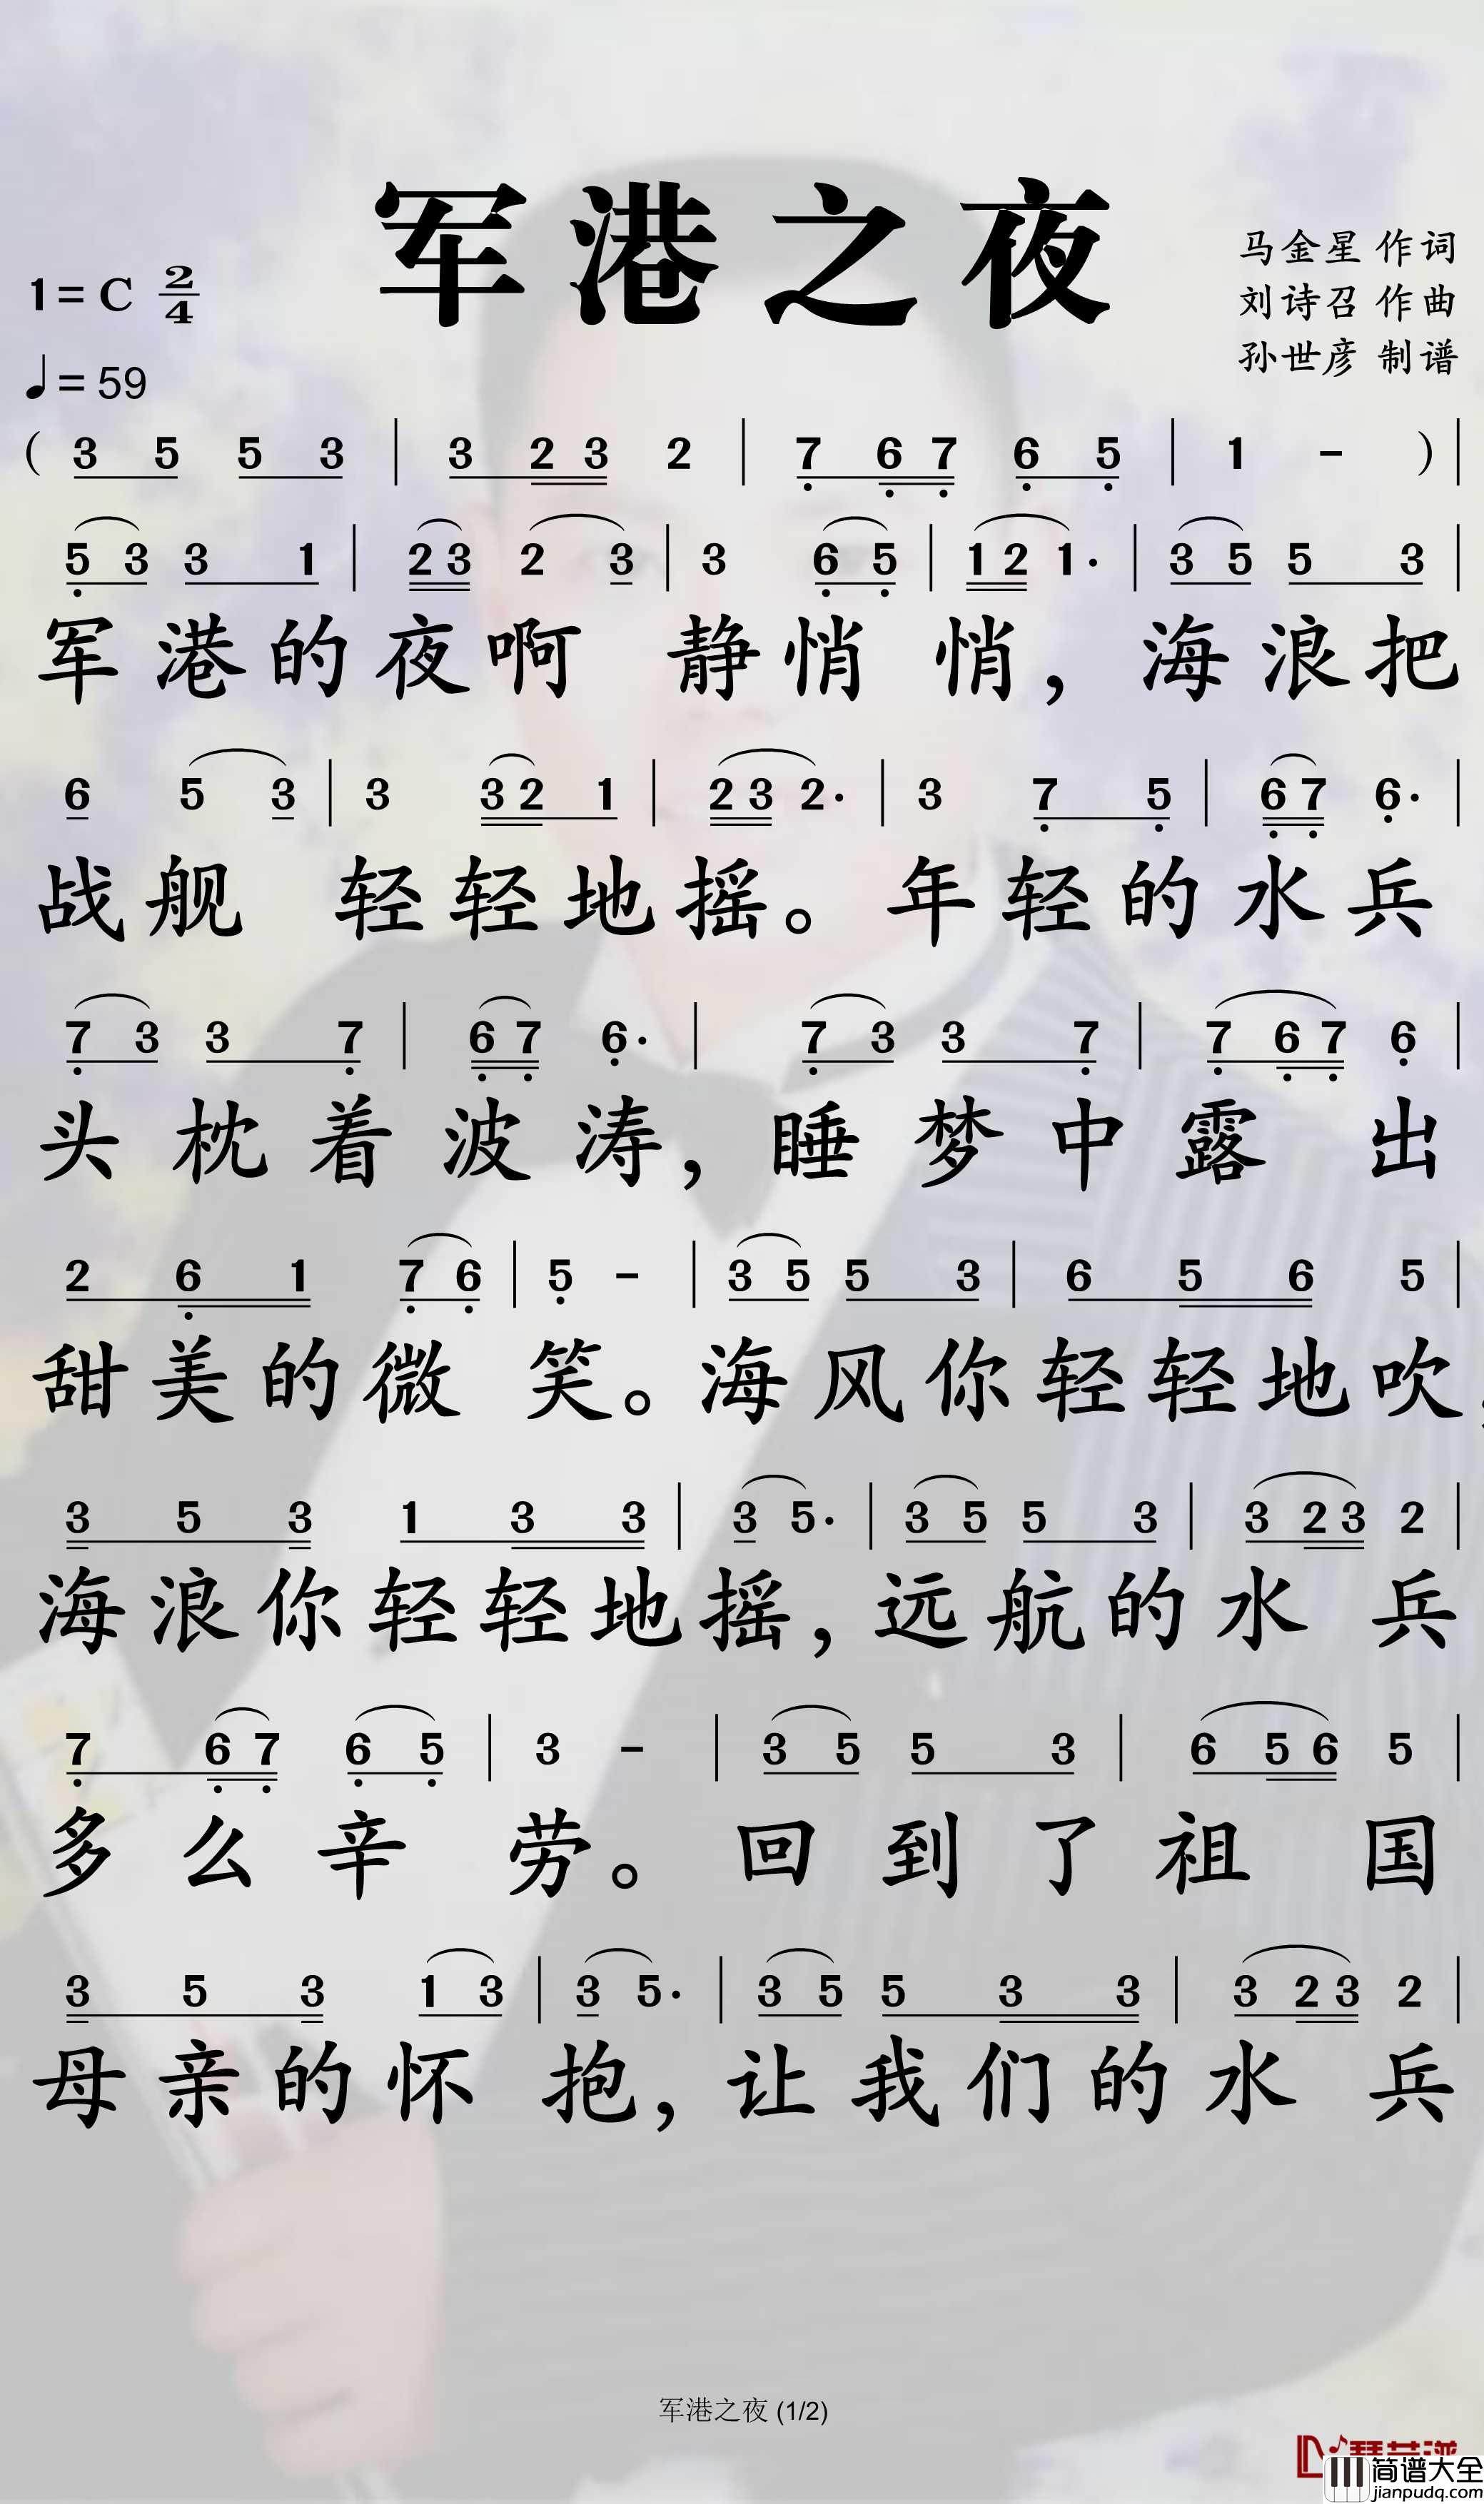 军港之夜
马金星 作词
1=C 2/4
刘诗召 作曲
孙世彦 制谱
♩=59
( 3 5 5 3 | 3 2 3 2 | 7 6 7 6 5 | 1 - ) |
5 3 3 1 | 2 3 2 3 | 3 6 5 | 1 2 1· | 3 5 5 3 |
军港的夜啊 静悄悄，海浪把
6 5 3 | 3 3 2 1 | 2 3 2· | 3 7 5 | 6 7 6· |
战舰 轻轻地摇。年轻的水兵
7 3 3 7 | 6 7 6· | 7 3 3 7 | 7 6 7 6 |
头枕着波涛，睡梦中露出
2 6 1 7 6 | 5 - | 3 5 5 3 | 6 5 6 5 |
甜美的微笑。海风你轻轻地吹，
3 5 3 1 3 3 | 3 5· | 3 5 5 3 | 3 2 3 2 |
海浪你轻轻地摇，远航的水兵
7 6 7 6 5 | 3 - | 3 5 5 3 | 6 5 6 5 |
多么辛劳。回到了祖国
3 5 3 1 3 | 3 5· | 3 5 5 3 3 | 3 2 3 2 |
母亲的怀抱，让我们的水兵
军港之夜 (1/2)
简谱大全
jianpudq.com